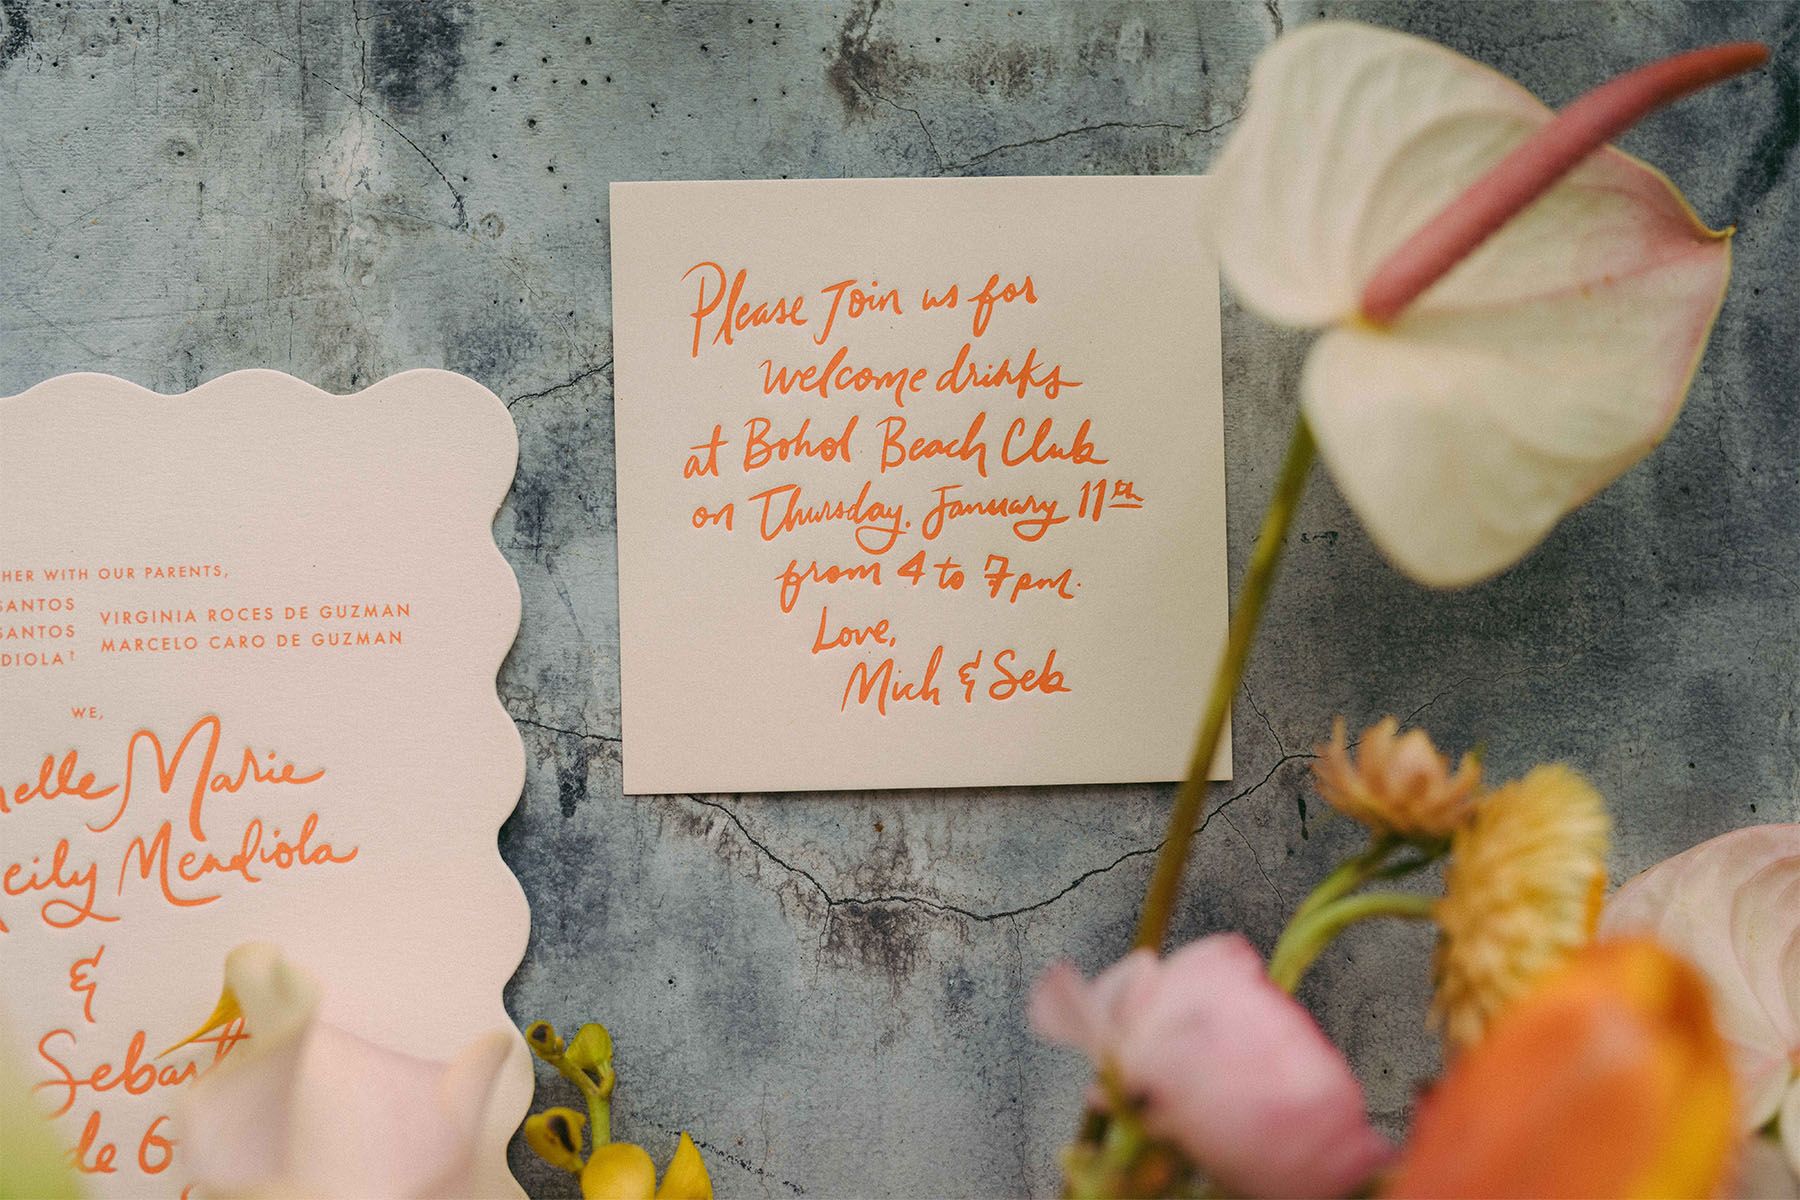 Please Join us for
welcome drinks
at Bohol Beach Club
on Thursday, January 11th
from 4 to 7pm.
Love,
Mich & Seb
WITH OUR PARENTS,
SANTOS VIRGINIA ROCES DE GUZMAN
SANTOS MARCELO CARO DE GUZMAN
WE,
Marie
Mendiola
&
de